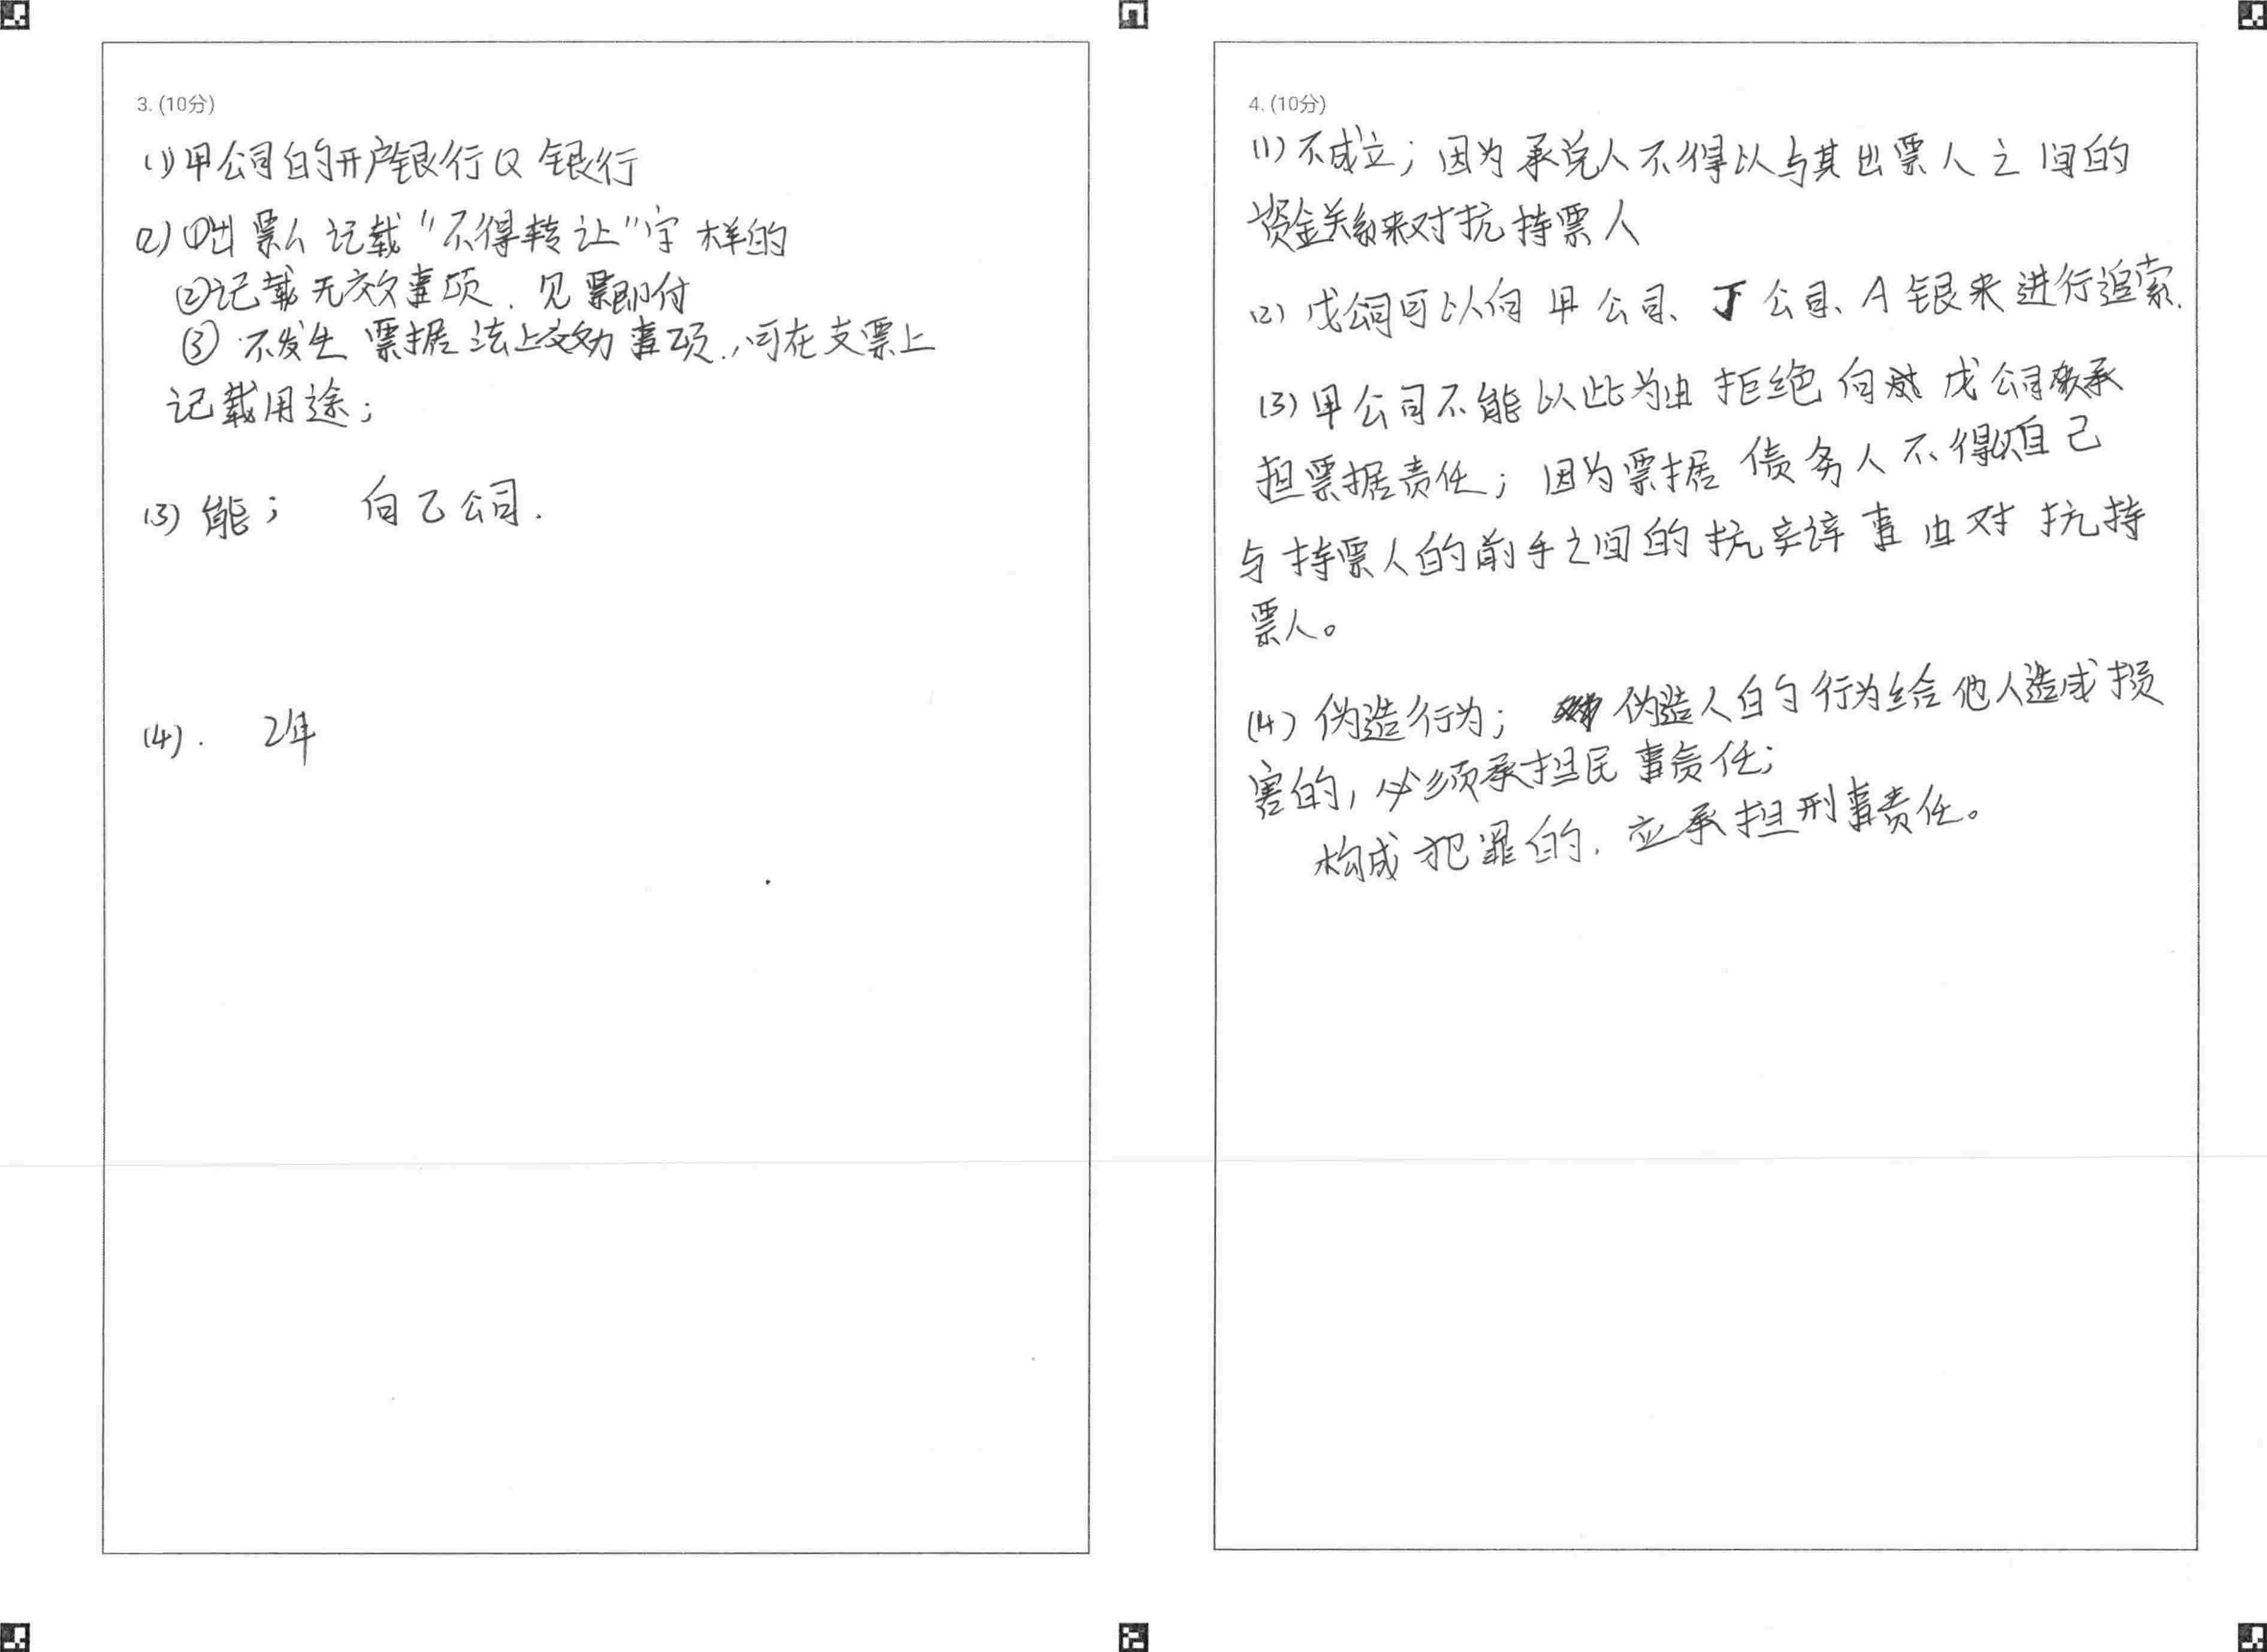 3. (10分)
(1)甲公司的开户银行Q银行
(2)①出票人记载“不得转让”字样的
②记载无效事项.见票即付
③不发生票据法上效力事项.,可在支票上
记载用途;
(3)能; 向乙公司.
(4). 2年
4. (10分)
(1)不成立;因为承兑人不得以与其出票人之间的
资金关系来对抗持票人
(2)戊公司可以向甲公司、丁公司、A银来进行追索.
(3)甲公司不能以此为由拒绝向戊公司承
担票据责任;因为票据债务人不得以自己
与持票人的前手之间的抗辩事由对抗持
票人。
(4)伪造行为; 伪造人的行为给他人造成损
害的,必须承担民事责任;
构成犯罪的.应承担刑事责任。